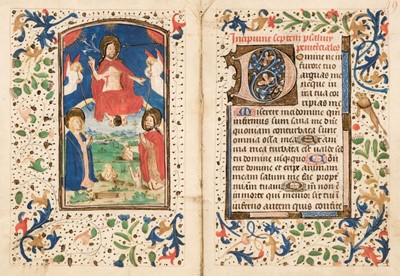 Incipiunt septem psalmi
penitenciales
Domine ne in
furore tuo
arguas me
neque in
ira tua cor
ripias me
Miserere mei domine qm
infirmus sum sana me dne
quoniam conturbata sunt
omnia ossa mea Et ani
ma mea turbata est valde sed
tu domine usquequo Conuer
tere domine et eripe animam
meam saluum me fac propt
miam tuam Qm non est
in morte qui memor sit tui
inferno autem quis confiteb